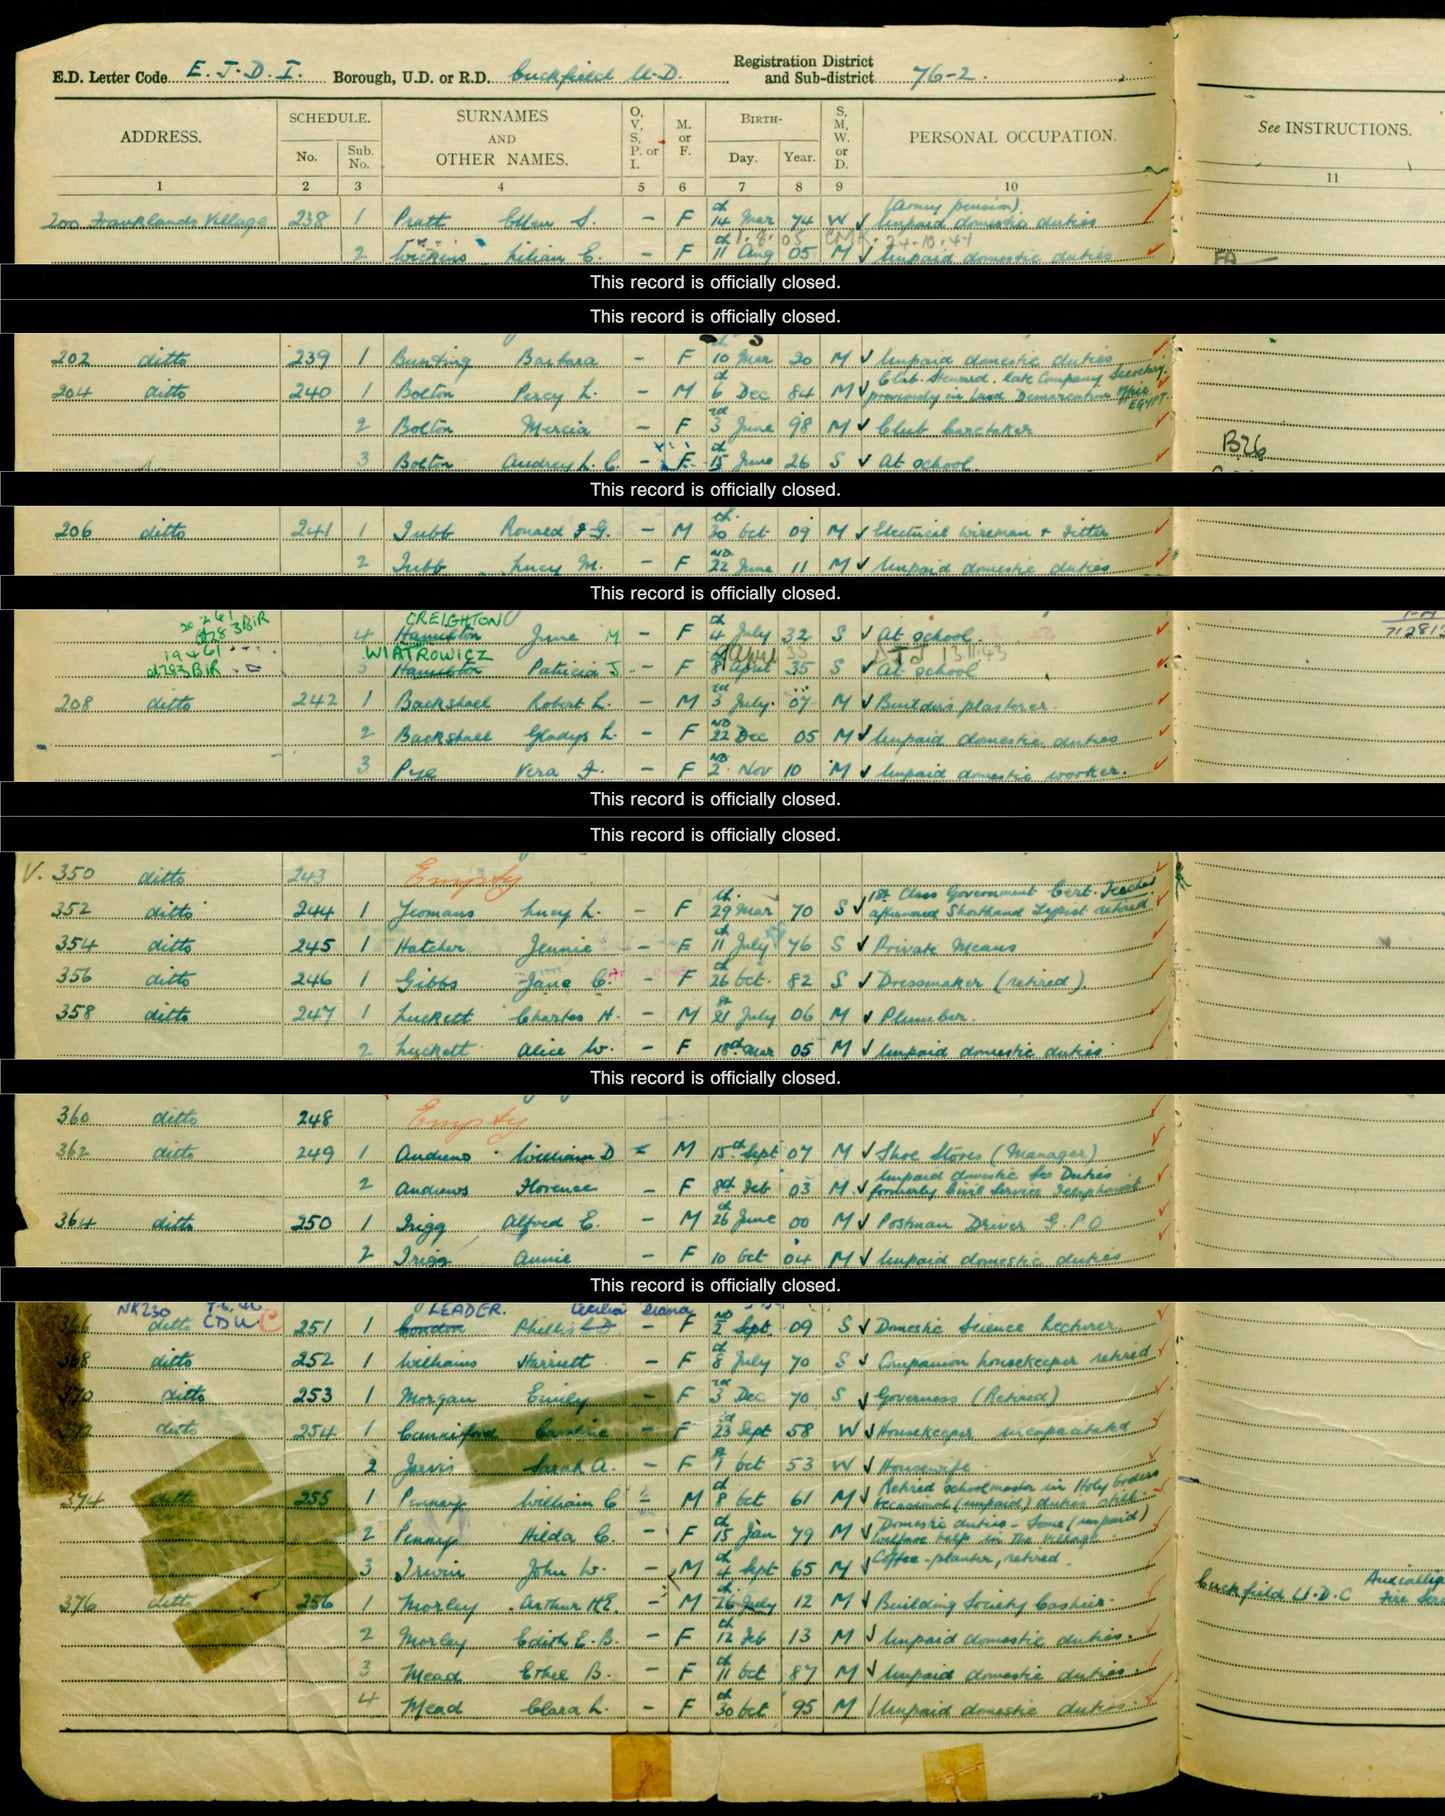 E.D. Letter Code E. J. D. I. Borough, U.D. or R.D. Cuckfield U.D. Registration District and Sub-district 76-2.
ADDRESS. SCHEDULE. No. Sub. No. SURNAMES AND OTHER NAMES. O, V, S, P. or I. M. or F. BIRTH- Day. Year. S, M, W. or D. PERSONAL OCCUPATION. See INSTRUCTIONS.
1 2 3 4 5 6 7 8 9 10 11
(Army pension)
200 Franklands Village 238 1 Pratt Ellen S. - F 14th Mar 74 W Unpaid domestic duties
1.8.05 CMK. 24-10-41
2 Wickens Lilian E. - F 11th Aug 05 M Unpaid domestic duties FA
This record is officially closed.
This record is officially closed.
202 ditto 239 1 Bunting Barbara - F 10th Mar 20 M Unpaid domestic duties
204 ditto 240 1 Bolton Percy L. - M 6th Dec 84 M Club Steward. late Company Secretary. previously in Land Demarcation Office EGYPT.
2 Bolton Mercia - F 3rd June 98 M Club Caretaker
3 Bolton Audrey L. C. - F 15th June 26 S At school. B26
This record is officially closed.
206 ditto 241 1 Tubb Ronald F. G. - M 30th Oct 09 M Electrical Wireman & Fitter
2 Tubb Lucy M. - F 22ND June 11 M Unpaid domestic duties
This record is officially closed.
20 2 61 CREIGHTON
4 Hamilton June M - F 4th July 32 S At school. 712815
19 4 61 WIATROWICZ April 35 13.11.43
d783 BIR Hamilton Patricia J - F 8 April 35 S At school
208 ditto 242 1 Backshall Robert L. - M 3rd July 07 M Builders plasterer
2 Backshall Gladys L. - F 22ND Dec 05 M Unpaid domestic duties
3 Pye Vera F. - F 2ND Nov 10 M Unpaid domestic worker.
This record is officially closed.
This record is officially closed.
V. 350 ditto 243 Empty
352 ditto 244 1 Yeomans Lucy L. - F 29th Mar 70 S 1st Class Government Cert. Teacher afterward Shorthand Typist retired
354 ditto 245 1 Hatcher Jennie - F 11th July 76 S Private Means
356 ditto 246 1 Gibbs Jane C. - F 26th Oct. 82 S Dressmaker (retired)
358 ditto 247 1 Luckett Charles H. - M 21st July 06 M Plumber.
2 Luckett Alice W. - F 18th Mar 05 M Unpaid domestic duties
This record is officially closed.
360 ditto 248 Empty
362 ditto 249 1 Andrews William D - M 15th Sept 07 M Shoe Stores (Manager)
2 Andrews Florence - F 8th Feb 03 M Unpaid domestic Duties formerly Civil Service Telephonist
364 ditto 250 1 Trigg Alfred E. - M 26th June 00 M Postman Driver G.P.O
2 Trigg Annie - F 10 Oct 04 M Unpaid domestic duties
This record is officially closed.
NK230 LEADER. Cecilia Diana
366 ditto CDW C 251 1 London Phillis C D - F 2ND Sept 09 S Domestic Science Lecturer
368 ditto 252 1 Williams Harriett - F 8th July 70 S Companion housekeeper retired
370 ditto 253 1 Morgan Emily - F 3rd Dec 70 S Governess (Retired)
372 ditto 254 1 Canniford Caroline F 23rd Sept 58 W Housekeeper incapacitated
2 Jarvis Sarah A. - F 1st Oct 53 W Housewife
374 ditto 255 1 Penney William C - M 8th Oct 61 M Retired Schoolmaster in Holy Orders occasional (unpaid) duties still.
2 Penney Hilda C. - F 15th Jan 79 M Domestic duties - Some (unpaid) welfare help in the village
3 Irwin John W. - M 4th Sept 65 M Coffee-planter, retired.
376 ditto 256 1 Morley Arthur H.E. - M 26th July 12 M Building Society Cashier. Cuckfield U.D.C
2 Morley Edith E. B. - F 12th Feb 13 M Unpaid domestic duties.
3 Mead Ethel B. - F 11th Oct 87 M Unpaid domestic duties.
4 Mead Clara L. - F 30th Oct 95 M Unpaid domestic duties.